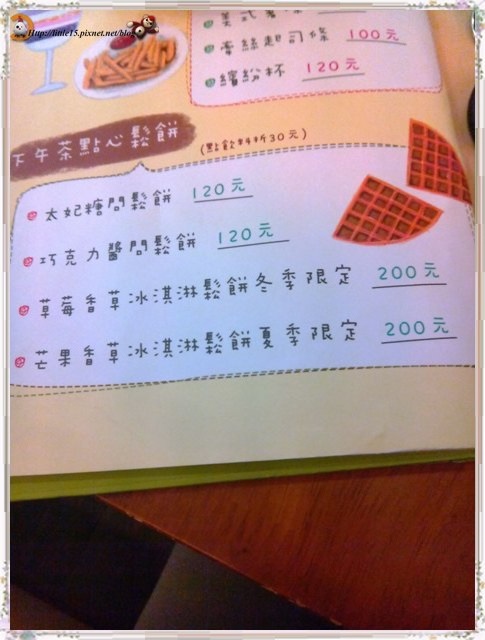 Http://little15.pixnet.net/blog
美式薯條
牽絲起司條 100元
繽紛杯 120元
下午茶點心鬆餅 (點飲料折30元)
太妃糖問鬆餅 120元
巧克力醬問鬆餅 120元
草莓香草冰淇淋鬆餅冬季限定 200元
芒果香草冰淇淋鬆餅夏季限定 200元